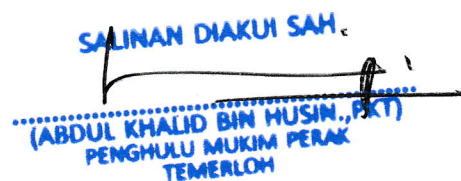 SALINAN DIAKUI SAH.
(ABDUL KHALID BIN HUSIN.,PKT)
PENGHULU MUKIM PERAK
TEMERLOH